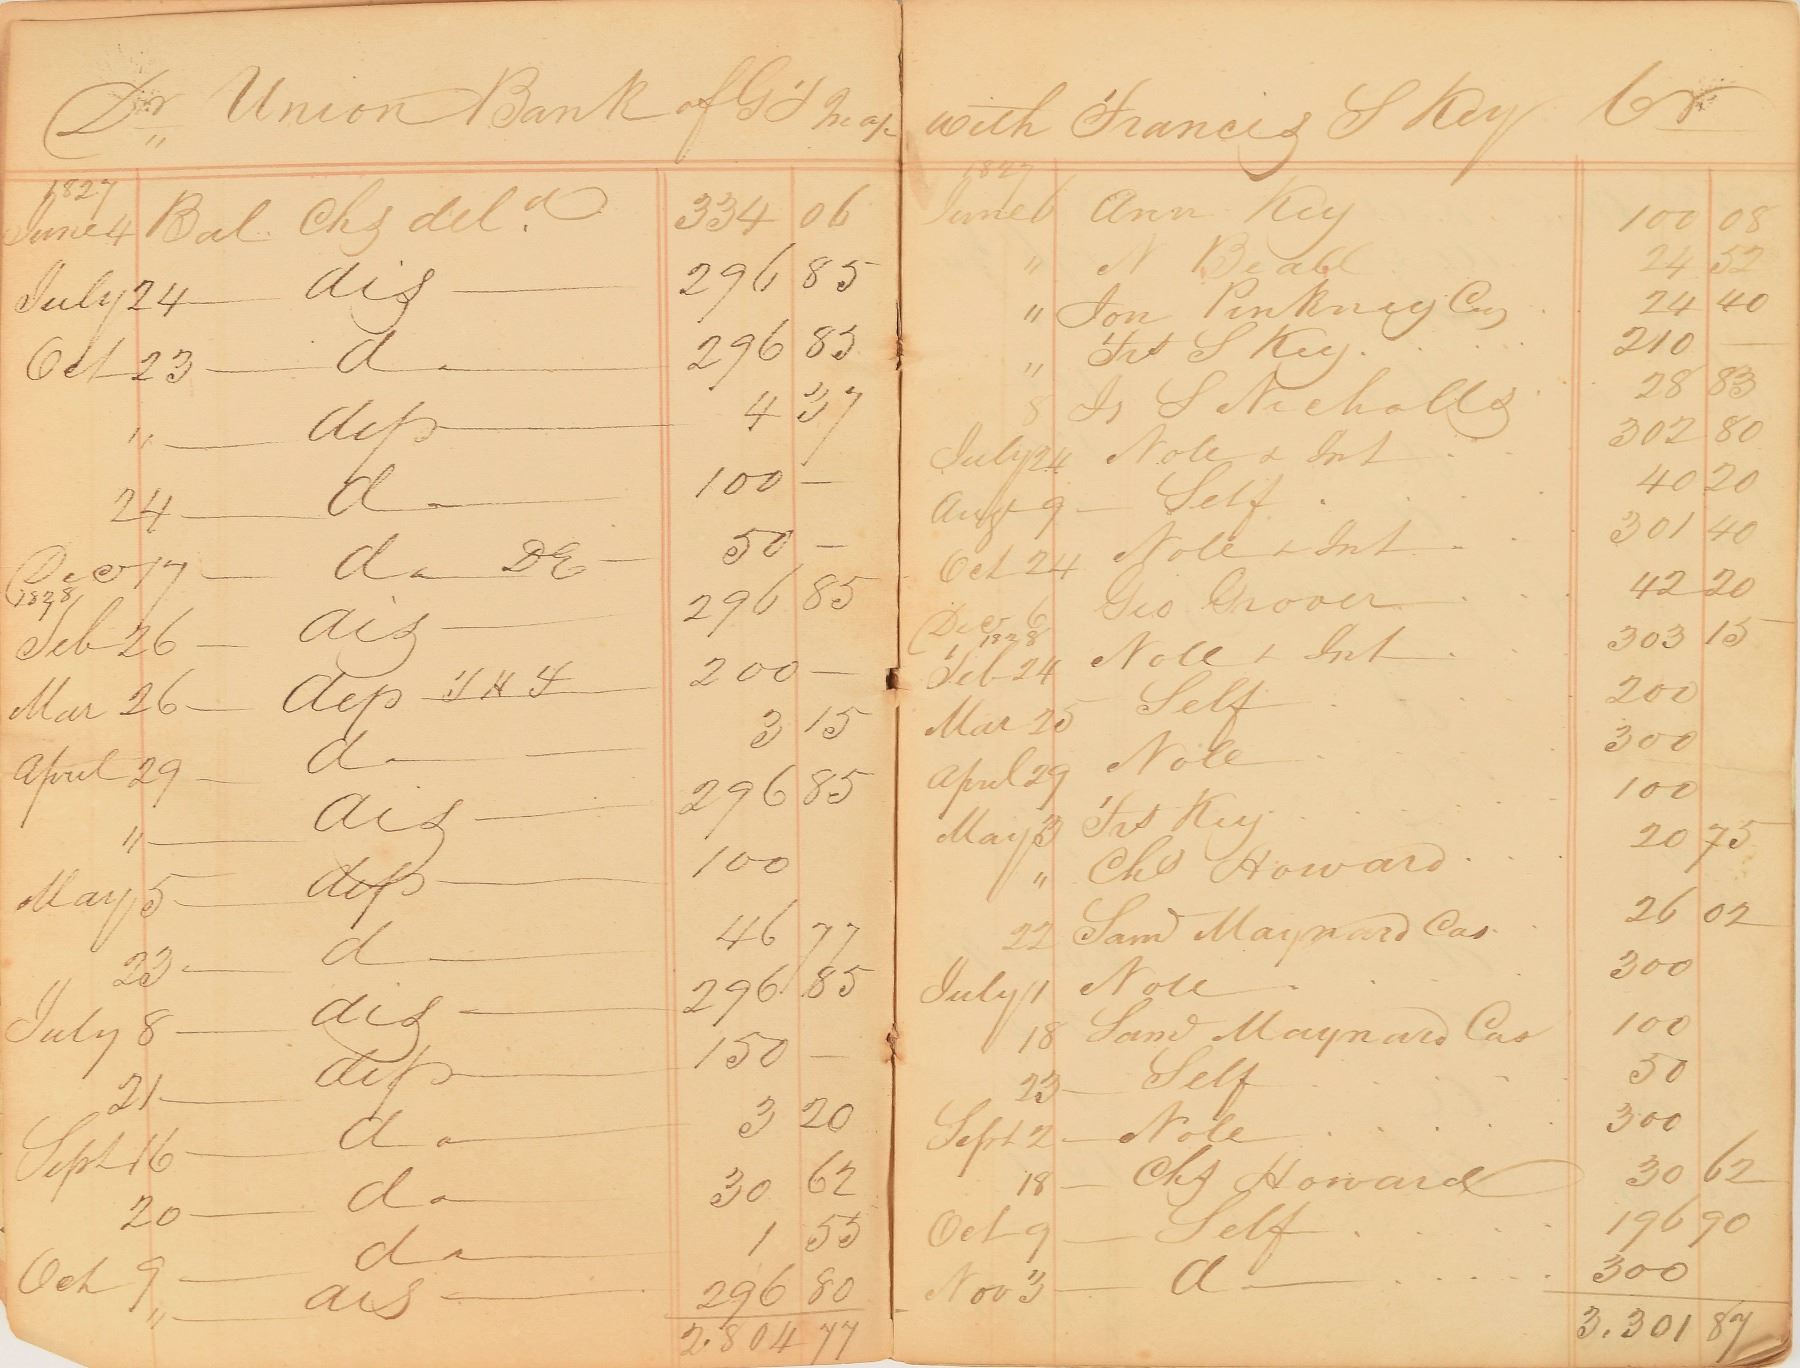 Dr Union Bank of G T In a/c
1827
June 4 Bal. Chs del.d 334 06
July 24 dis 296 85
Oct 23 do 296 85
" dep 4 37
24 do 100 —
Decr 17 do DE 50 —
1828
Feb 26 dis 296 85
Mar 26 dep 200 —
April 29 do 3 15
" dis 296 85
May 5 dep 100
23 do 46 77
July 8 dis 296 85
21 dep 150 —
Sept 16 do 3 20
20 do 30 62
Oct 9 do 1 55
" dis 296 80
2.804 77
with Francis S Key Cr
1827
June 6 Ann Key 100 08
" N Beall 24 52
" Jon Pinkney Cas 24 40
" Frs S Key 210 —
8 Is S Nicholls 28 83
July 24 Note & Int 302 80
Augt 9 Self 40 20
Oct 24 Note & Int 301 40
Decr 6 Geo Grover 42 20
1828
Feb 24 Note & Int 303 15
Mar 25 Self 200
April 29 Note 300
May 3 Frs Key 100
" Chs Howard 20 75
22 Saml Maynard Cas 26 02
July 1 Note 300
18 Saml Maynard Cas 100
23 Self 50
Sept 2 Note 300
18 Chs Howard 30 62
Oct 9 Self 196 90
Nov 3 d 300
3.301 87